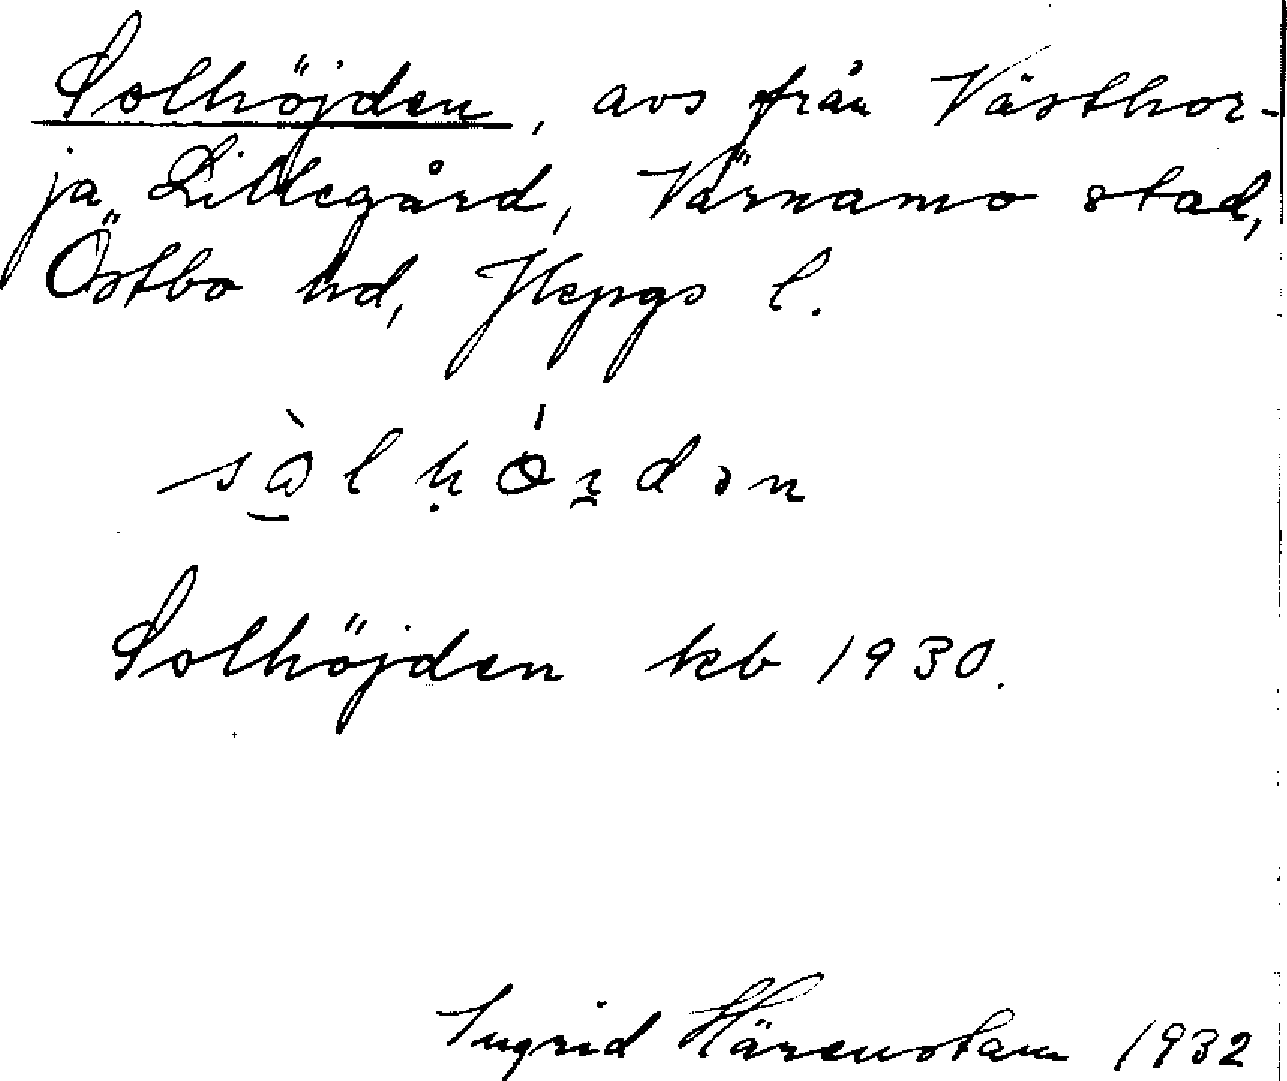 Solhöjden, avs från Västhor-
ja Lillegård, Värnamo stad,
Östbo hd, Jkpgs l.
sòlhö́ɪdən
Solhöjden kb 1930.
Ingrid Härenstam 1932